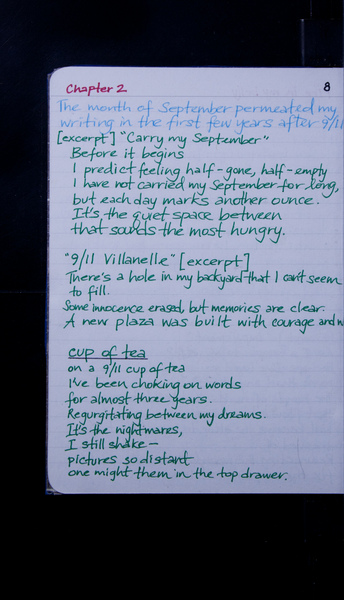 Chapter 2
8
The month of September permeated my
writing in the first few years after 9/11
[excerpt] "Carry my September"
Before it begins
I predict feeling half-gone, half-empty
I have not carried my September for long,
but each day marks another ounce.
It's the quiet space between
that sounds the most hungry.
"9/11 Villanelle" [excerpt]
There's a hole in my backyard that I can't seem
to fill.
Some innocence erased, but memories are clear.
A new plaza was built with courage and
cup of tea
on a 9/11 cup of tea
I've been choking on words
for almost three years.
Regurgitating between my dreams.
It's the nightmares,
I still shake—
pictures so distant
one might them in the top drawer.